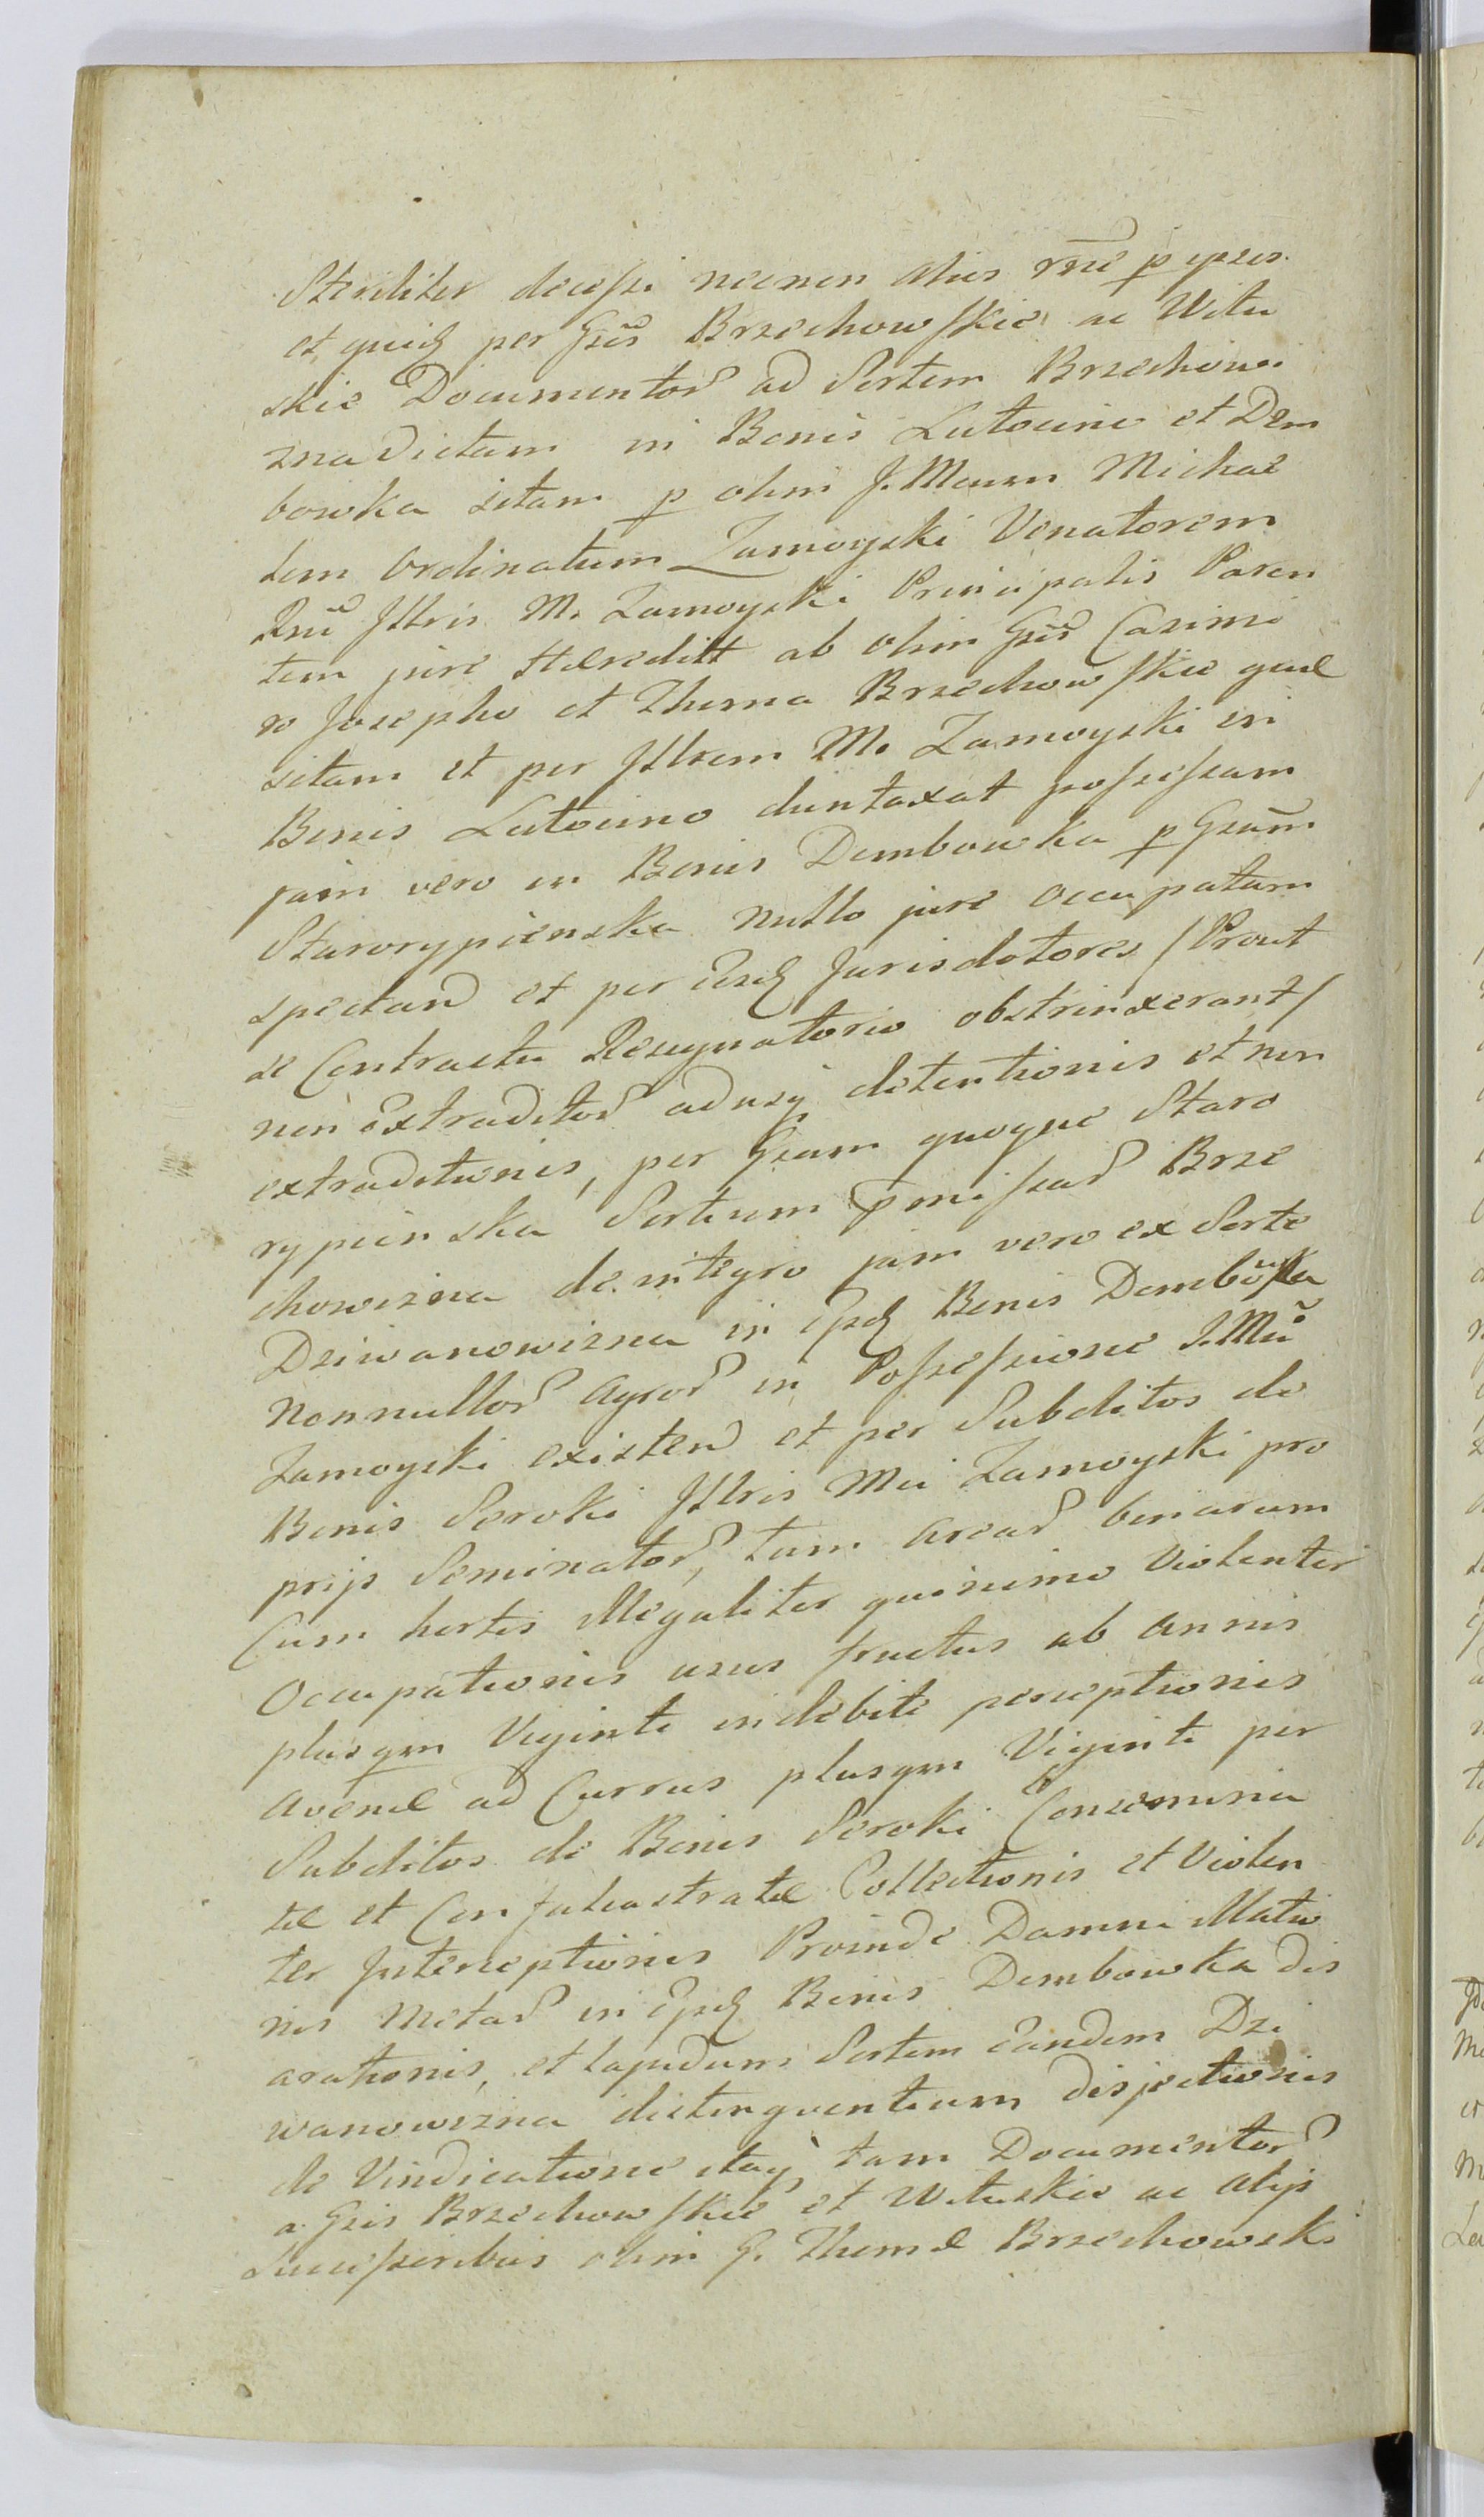 Steriliter decessi necnon Alius rne p ipsos
et quidq per Gsos Brzechowskie ac Witu
skie Documentor ad Sortem Brzechowi
zna dictam in Bonis Lutocino et Dem
bowka sitam p olim J. Mcum Michae
lem Ordinatum Zamoyski Venatorem
Rni Jllris M. Zamoyski Principalis Paren
tem jure Haereditt ab olim Gsis Casimi
ro Josepho et Thoma Brzechowskie quae
sitam et per Jllrem M. Zamoyski in
Bonis Lutocino duntaxat possessam
jam vero in Bonis Dembowka p Gsam
Starorypienska nullo jure occupatam
spectand et per eosdq Jurisdatores /Prout
se Contractu Resignatorio obstrinxerant/
non extraditor adusq detentionis et non
extraditionis, per Gsam quoque Staro
rypienska Sortium pmissar Brze
chowizna de integro jam vero ex Sorte
Dziwanowizna in ijsdq Bonis Dembowka
Nonnullor Agror in Possessione J. Mci
Zamoyski existen et per Subditos de
Bonis Soroki Jllris Mci Zamoyski pro
prijs Seminator, tam Arear binarum
Cum hortis illegaliter quinimo Violenter
Occupationis usus fructus ab Annis
plusqm Viginti indebite perceptionis
Avenae ad Currus plusqm Viginti per
Subditos de Bonis Soroki Conseminia
tae et Confalcastratae Collectionis et Violen
ter Interceptionis Proinde Damni Illatio
nis Metar in ijsdq Bonis Dembowka dis
arationis, et lapidum Sortem eandem Dzi
wanowizna distinguentium disjectionis
de Vindicatione itaq tam Documentor
a Gsis Brzechowskie et Wituskie ac Alijs
Successoribus olim G. Thomae Brzechowski